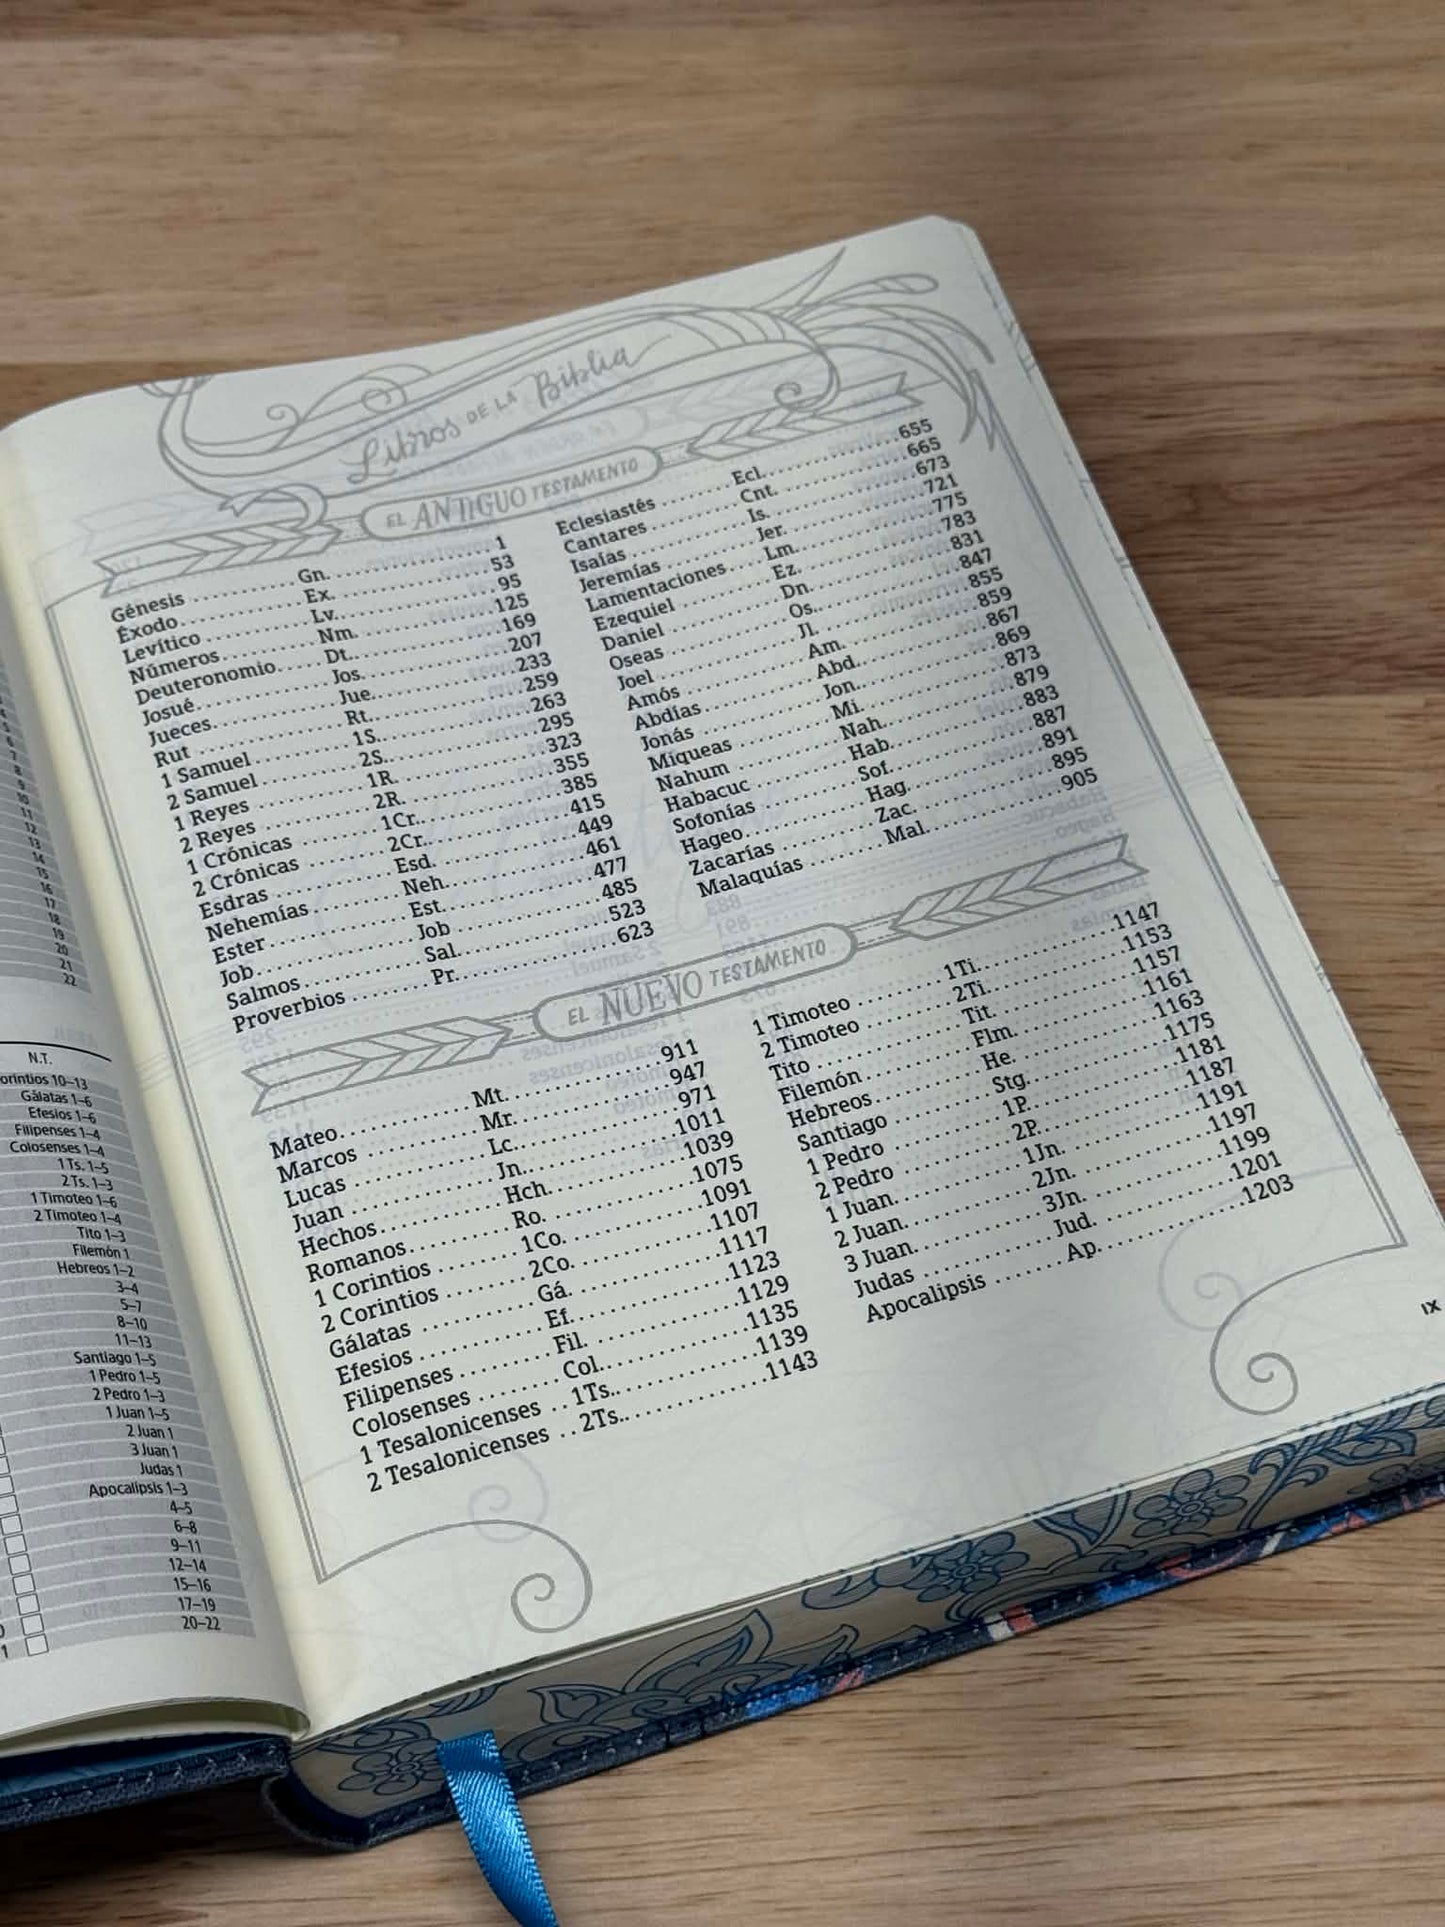 7
8
9
10
11
12
13
14
15
16
17
18
19
20
21
22
N.T.
orintios 10–13
Gálatas 1–6
Efesios 1–6
Filipenses 1–4
Colosenses 1–4
1 Ts. 1–5
2 Ts. 1–3
1 Timoteo 1–6
2 Timoteo 1–4
Tito 1–3
Filemón 1
Hebreos 1–2
3–4
5–7
8–10
11–13
Santiago 1–5
1 Pedro 1–5
2 Pedro 1–3
1 Juan 1–5
2 Juan 1
3 Juan 1
Judas 1
Apocalipsis 1–3
4–5
6–8
9–11
12–14
15–16
17–19
20–22
Libros DE LA Biblia
EL ANTIGUO TESTAMENTO
Génesis .......... Gn. .......... 1
Éxodo .......... Ex. .......... 53
Levítico .......... Lv. .......... 95
Números .......... Nm. .......... 125
Deuteronomio ..... Dt. .......... 169
Josué .......... Jos. .......... 207
Jueces .......... Jue. .......... 233
Rut .......... Rt. .......... 259
1 Samuel .......... 1S. .......... 263
2 Samuel .......... 2S. .......... 295
1 Reyes .......... 1R. .......... 323
2 Reyes .......... 2R. .......... 355
1 Crónicas ........ 1Cr. .......... 385
2 Crónicas ........ 2Cr. .......... 415
Esdras .......... Esd. .......... 449
Nehemías .......... Neh. .......... 461
Ester .......... Est. .......... 477
Job .......... Job .......... 485
Salmos .......... Sal. .......... 523
Proverbios ........ Pr. .......... 623
Eclesiastés ........ Ecl. .......... 655
Cantares .......... Cnt. .......... 665
Isaías .......... Is. .......... 673
Jeremías .......... Jer. .......... 721
Lamentaciones .... Lm. .......... 775
Ezequiel .......... Ez. .......... 783
Daniel .......... Dn. .......... 831
Oseas .......... Os. .......... 847
Joel .......... Jl. .......... 855
Amós .......... Am. .......... 859
Abdías .......... Abd. .......... 867
Jonás .......... Jon. .......... 869
Miqueas .......... Mi. .......... 873
Nahum .......... Nah. .......... 879
Habacuc .......... Hab. .......... 883
Sofonías .......... Sof. .......... 887
Hageo .......... Hag. .......... 891
Zacarías .......... Zac. .......... 895
Malaquías ........ Mal. .......... 905
EL NUEVO TESTAMENTO
Mateo .......... Mt. .......... 911
Marcos .......... Mr. .......... 947
Lucas .......... Lc. .......... 971
Juan .......... Jn. .......... 1011
Hechos .......... Hch. .......... 1039
Romanos .......... Ro. .......... 1075
1 Corintios ...... 1Co. .......... 1091
2 Corintios ........ 2Co. .......... 1107
Gálatas .......... Gá. .......... 1117
Efesios .......... Ef. .......... 1123
Filipenses ......... Fil. .......... 1129
Colosenses ........ Col. .......... 1135
1 Tesalonicenses .. 1Ts. .......... 1139
2 Tesalonicenses .. 2Ts. .......... 1143
1 Timoteo ......... 1Ti. .......... 1147
2 Timoteo ......... 2Ti. .......... 1153
Tito .......... Tit. .......... 1157
Filemón .......... Flm. .......... 1161
Hebreos .......... He. .......... 1163
Santiago .......... Stg. .......... 1175
1 Pedro .......... 1P. .......... 1181
2 Pedro .......... 2P. .......... 1187
1 Juan .......... 1Jn. .......... 1191
2 Juan .......... 2Jn. .......... 1197
3 Juan .......... 3Jn. .......... 1199
Judas .......... Jud. .......... 1201
Apocalipsis ....... Ap. .......... 1203
IX